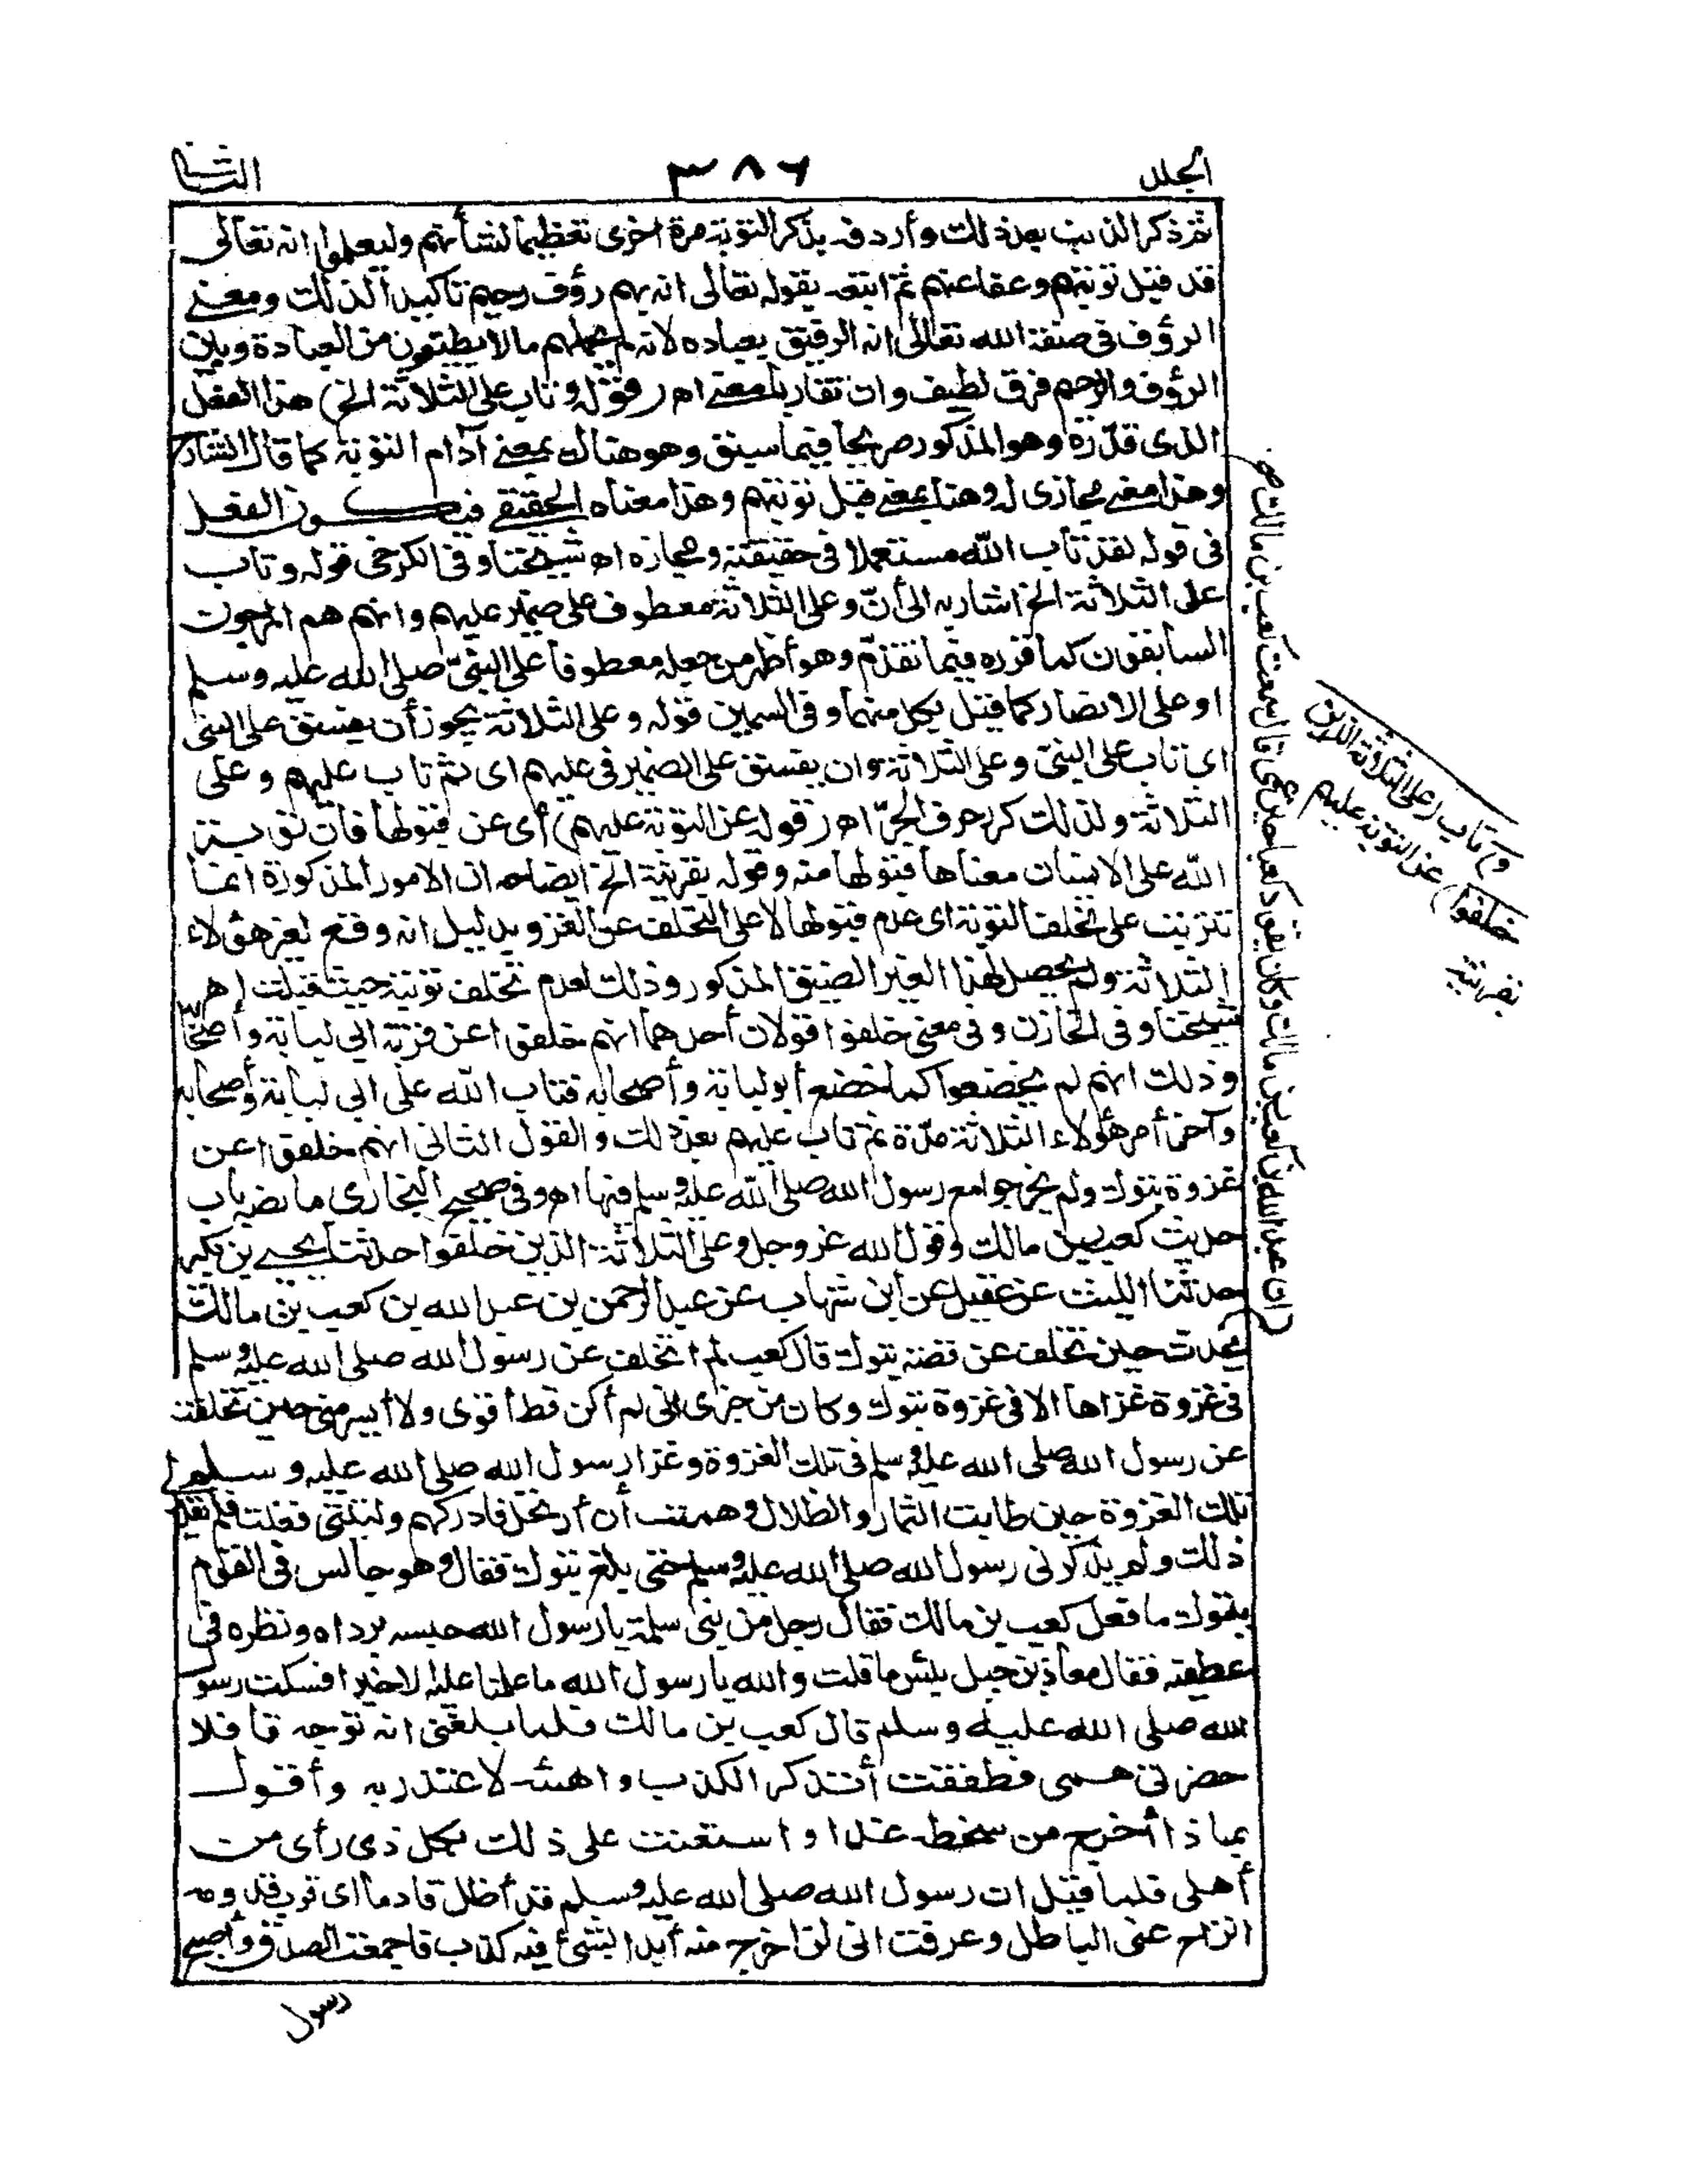 الجلد ٣٨٦ الثانى
ثم ذكر الذنب بعد ذلك وأردفه بذكر التوبة مرة اخرى تعظيما لشأنهم وليعلموا انه تعالى
قد قبل توبتهم وعفا عنهم ثم اتبعه بقوله تعالى انه بهم رؤف رحيم تأكيدا لذلك ومعنى
الرؤف فى صفة الله تعالى انه الرفيق بعباده لانه لم يحملهم ما لا يطيقون من العبادة وبين
الرؤف والرحيم فرق لطيف وان تقاربا معنى اه (قوله وتاب على الثلاثة الخ) هذا الفعل
الذى قدّره وهو المذكور صريحا فيما سبق وهو هناك بمعنى أدام التوبة كما قال الشارح
وهذا معنى مجازى له وهنا بمعنى قبل توبتهم وهذا معناه الحقيقى فيكون الفعل
فى قوله لقد تاب الله مستعملا فى حقيقته ومجازه اه شيخنا وفى الكرخى قوله وتاب
على الثلاثة الخ اشار به الى أنّ وعلى الثلاثة معطوف على ضمير عليهم وانهم هم المرجون
السابقون كما قرره فيما تقدّم وهو أظهر من جعله معطوفا على النبىّ صلى الله عليه وسلم
او على الانصار كما قيل بكل منهما وفى السمين قوله وعلى الثلاثة يجوز أن ينسق على النبى
اى تاب على النبىّ وعلى الثلاثة وان ينسق على الضمير فى عليهم اى ثم تاب عليهم وعلى
الثلاثة ولذلك كرر حرف الجرّ اه (قوله عن التوبة عليهم) أى عن قبولها فان توبة
الله على الانسان معناها قبولها منه وقوله بقرينة الخ ايضاحه ان الامور المذكورة انما
تترتب على تخلف التوبة اى عدم قبولها لا على التخلف عن الغزو بدليل انه وقع لغير هؤلاء
الثلاثة ولم يحصل لهذا الغير الضيق المذكور وذلك لعدم تخلف توبته حيث قبلت اه
شيخنا وفى الخازن وفى معنى خلفوا قولان أحدهما انهم خلفوا عن توبة ابى لبابة وأصحابه
وذلك انهم لم يخضعوا كما خضع أبو لبابة وأصحابه فتاب الله على ابى لبابة وأصحابه
وأخر أمر هؤلاء الثلاثة مدّة ثم تاب عليهم بعد ذلك والقول الثانى انهم خلفوا عن
غزوة تبوك ولم يخرجوا مع رسول الله صلى الله عليه وسلم فيها اه وفى صحيح البخارى ما نصه باب
حديث كعب بن مالك وقول الله عز وجل وعلى الثلاثة الذين خلفوا حدثنا يحيى بن بكير
حدثنا الليث عن عقيل عن ابن شهاب عن عبد الرحمن بن عبد الله بن كعب بن مالك
يحدث حين تخلف عن قصة تبوك قال كعب لم اتخلف عن رسول الله صلى الله عليه وسلم
فى غزوة غزاها الا فى غزوة تبوك وكان من خبرى انى لم أكن قط أقوى ولا أيسر منى حين تخلفت
عن رسول الله صلى الله عليه وسلم فى تلك الغزوة وغزا رسول الله صلى الله عليه وسلم
تلك الغزوة حين طابت الثمار والظلال وهممت أن أرتحل فادركهم وليتنى فعلت فلم يقدر لى
ذلك ولم يذكرنى رسول الله صلى الله عليه وسلم حتى بلغ تبوك فقال وهو جالس فى القوم
بتبوك ما فعل كعب بن مالك فقال رجل من بنى سلمة يا رسول الله حبسه برداه ونظره فى
عطفيه فقال معاذ بن جبل بئس ما قلت والله يا رسول الله ما علمنا عليه الا خيرا فسكت رسول
الله صلى الله عليه وسلم قال كعب بن مالك فلما بلغنى انه توجه قافلا
حضرنى همى فطفقت أتذكر الكذب واهيئه لاعتذر به وأقول
بماذا أخرج من سخطه غدا واستعنت على ذلك بكل ذى رأى من
أهلى فلما قيل ان رسول الله صلى الله عليه وسلم قد أظل قادما اى قرب قدومه
انزاح عنى الباطل وعرفت انى لن اخرج منه أبدا بشئ فيه كذب فاجمعت الصدق وأصبح
رسول
ان عبد الله بن كعب بن مالك وكان يقود كعبا حين عمى قال سمعت كعب بن مالك
و تاب (على الثلاثة الذين
خلفوا) عن التوبة عليهم
بقرينة